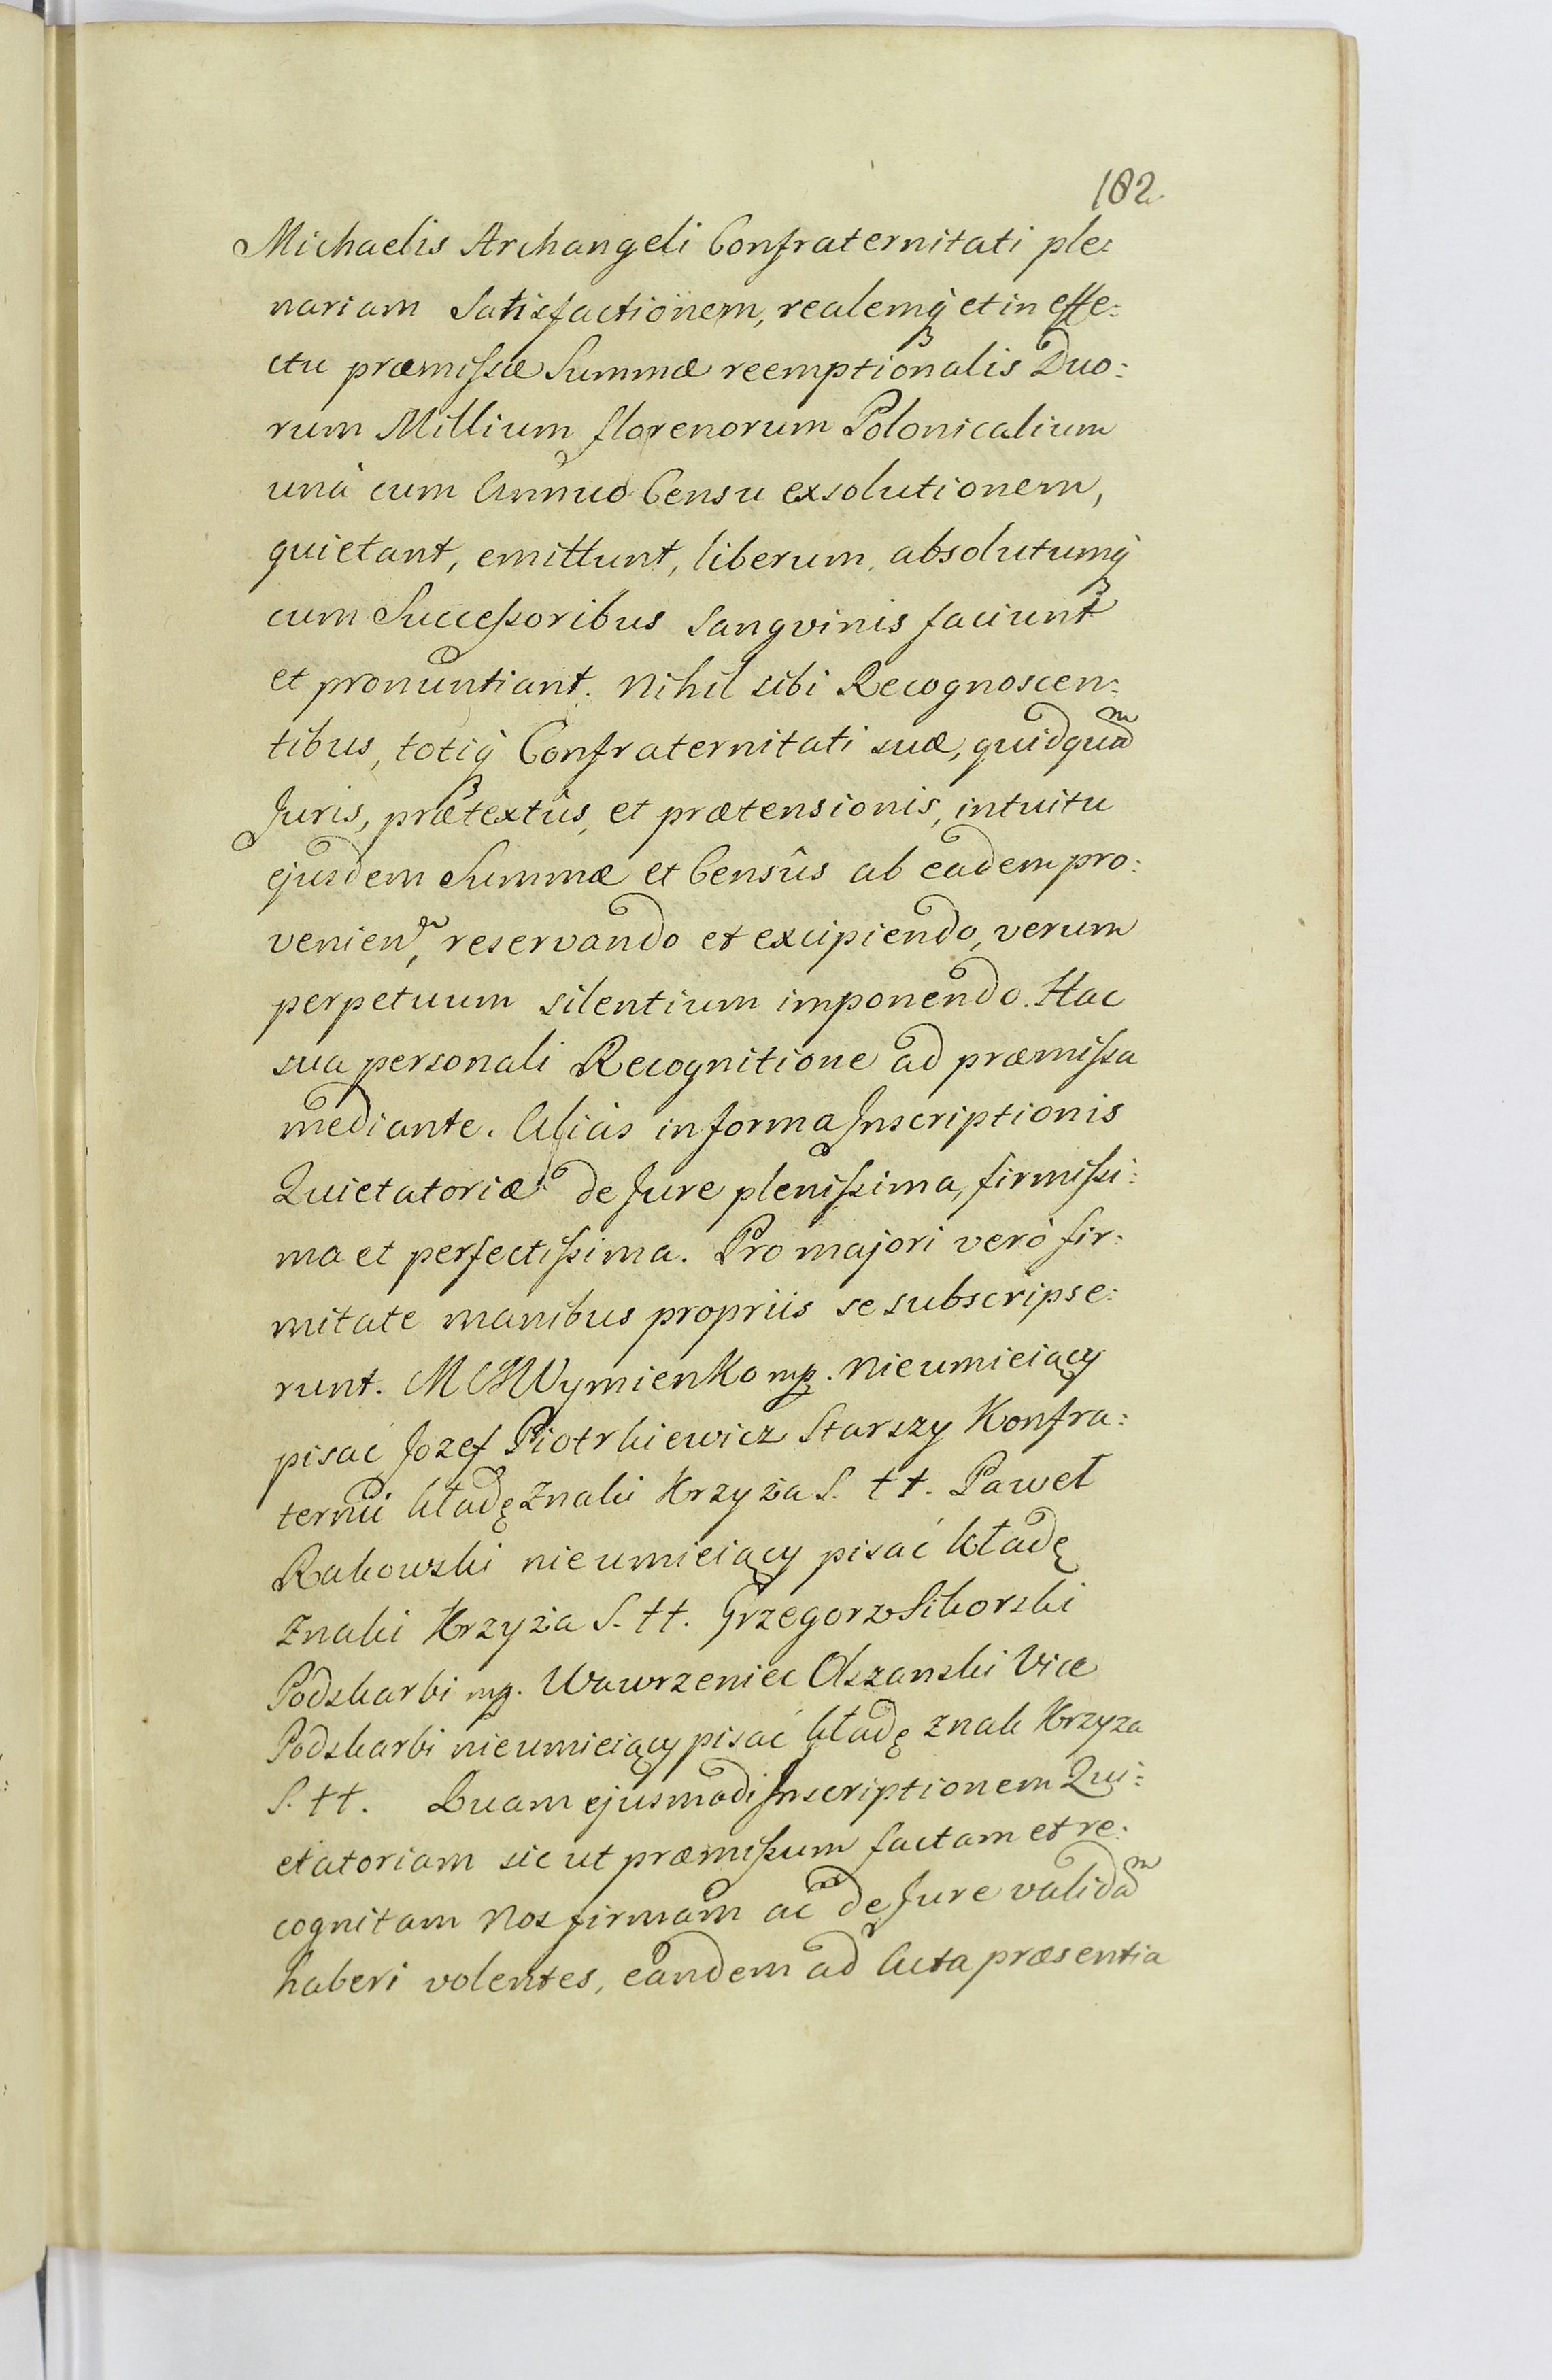 182.
Michaelis Archangeli Confraternitati ple:
nariam Satisfactionem, realemq́ et in effe:
ctu præmissæ Summæ reemptionalis Duo:
rum Millium florenorum Polonicalium
unà cum Annuo Censu exsolutionem,
quietant, emittunt, liberum, absolutumq́
cum Successoribus Sangvinis faciunt
et pronuntiant. Nihil sibi Recognoscen:
tibus, totiq́ Confraternitati suæ, quidquãm
Juris, prætextûs, et prætensionis, intuitu
ejusdem Summæ et Censûs ab eadem pro:
venien, reservando et excipiendo, verum
perpetuum silentium imponendo. Hac
sua personali Recognitione ad præmissa
mediante. Aliàs in forma Inscriptionis
Quietatoriæ de Jure plenissima, firmissi:
ma et perfectissima. Pro majori verò fir:
mitate manibus propriis se subscripse:
runt. Wymienko mp. Nieumieiący
pisać Jozef Piotrkiewicz Starszy Konfra:
ternii kładę Znaki Krzyża S. ††. Paweł
Rakowski nieumieiący pisać kładę
Znaki Krzyża S. ††. Grzegorz Sikorski
Podskarbi mp. Wawrzeniec Olszanski Vice
Podskarbi nieumieiący pisać kładę znak Krzyza
S. ††. Quam ejusmodi Inscriptionem Qui:
etatoriam sic ut præmissum factam et re:
cognitam Nos firmam ac de Jure validam
haberi volentes, eandem ad Acta præsentia